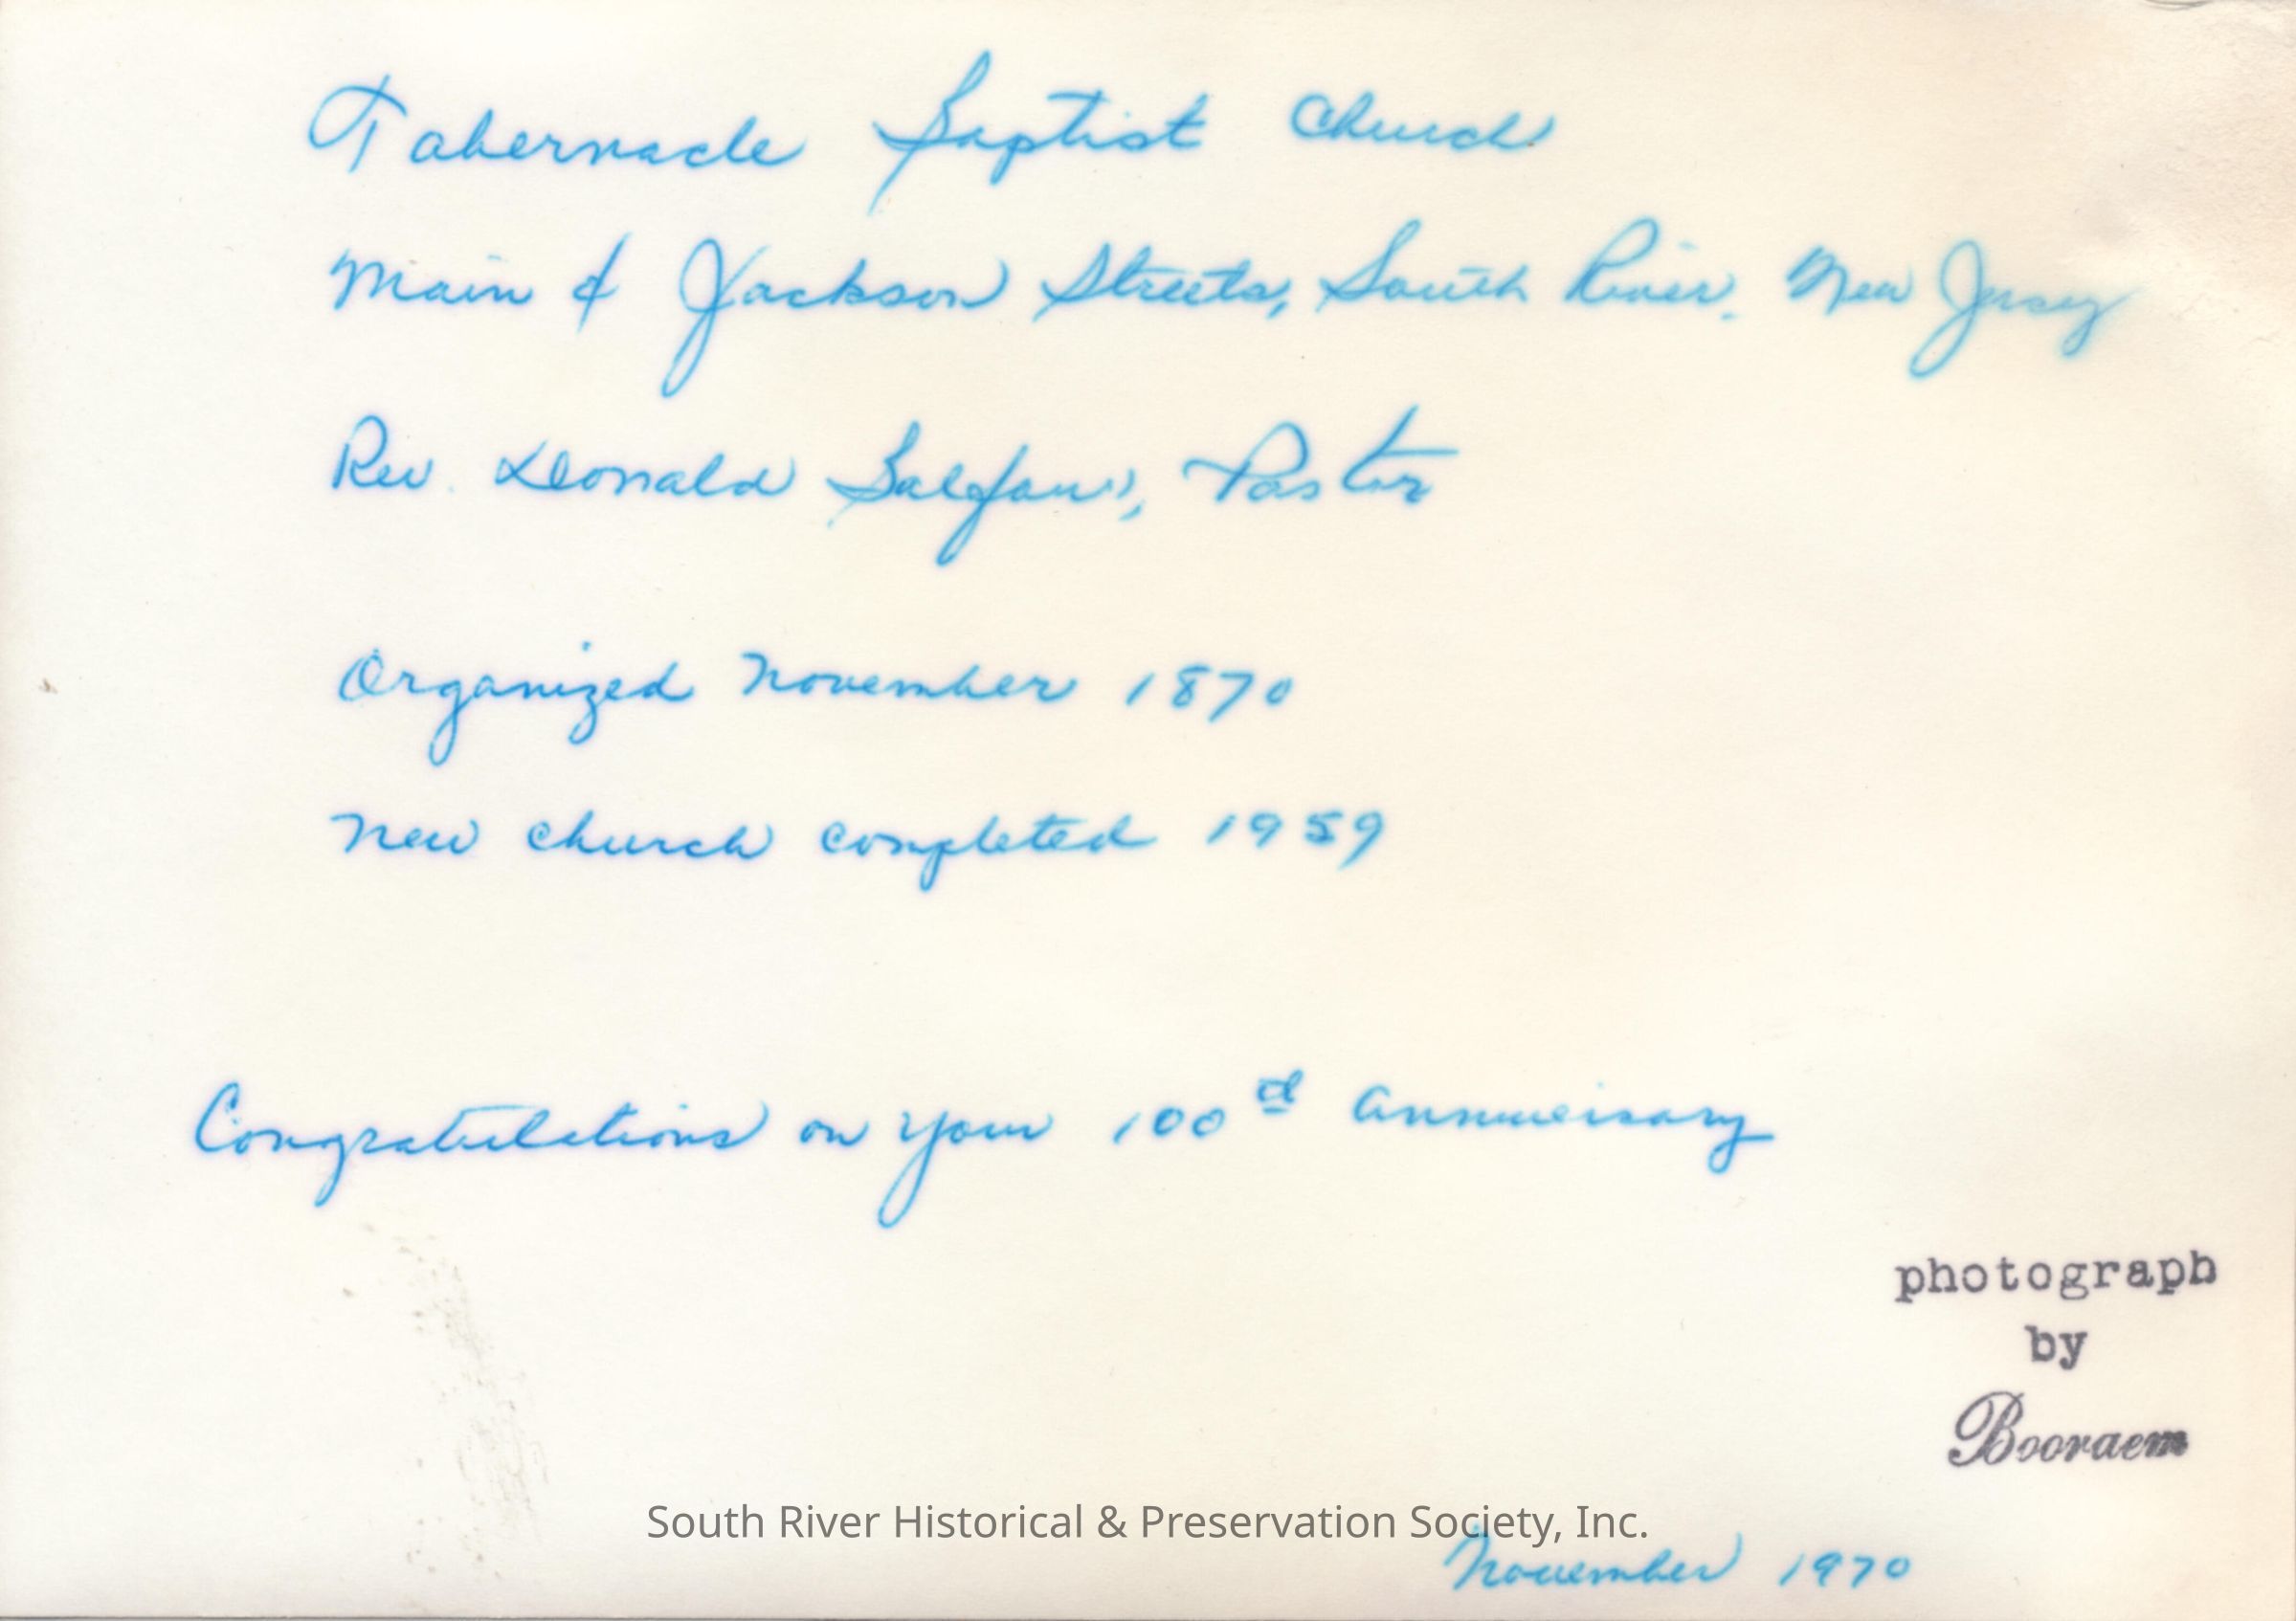 Tabernacle Baptist Church
Main & Jackson Streets, South River, New Jersey
Rev. Donald Pastor
Organized November 1870
New church completed 1959
Congratulations on your 100th Anniversary
photograph
by
Booraem
South River Historical & Preservation Society, Inc.
November 1970